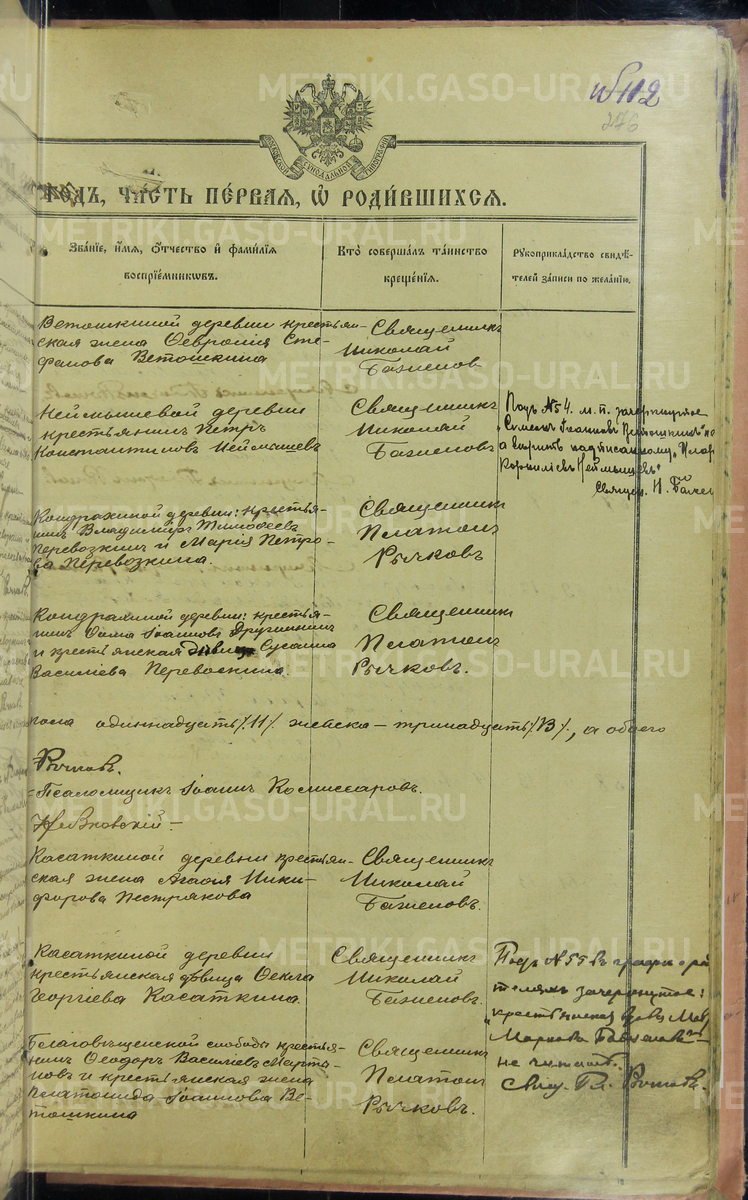 № 112
276
МОСКОВСКОЙ СѴНОДАЛЬНОЙ ТИПОГРАФІИ
ГОДЪ, ЧАСТЬ ПЕРВАЯ, Ѡ РОДИВШИХСЯ.
Званіе, имя, отчество и фамилія воспріемниковъ.
Кто совершалъ таинство крещенія.
Рукоприкладство свидѣтелей записи по желанію.
Ветошкиной деревни крестьян-
ская жена Ѳевронія Сте-
фанова Ветошкина
Священникъ
Николай
Баженов
Неймышевой деревни
крестьянинъ Петръ
Константиновъ Неймышевъ
Священникъ
Николай
Баженовъ
Подъ №54. м. п. зачеркнутое
„Симеонъ Іоанновъ Ветошкинъ" не
а вѣрить надписанному „Илар
Корниліевъ Неймышевъ"
Священ. Н. Бажен
Кондрахиной деревни: крестья-
нинъ Владиміръ Тимоѳеевъ
Перевозкинъ и Марія Петро-
ва Перевозкина.
Священник
Платонъ
Рычковъ
Кондрахиной деревни: крестья-
нинъ Ѳома Іоанновъ Дружининъ
и крестьянская дѣвица Сусанна
Василіева Перевоскина.
Священник
Платонъ
Рычковъ.
пола одиннадцать /11/ женска – тринадцать /13/, а обоего
Рычковъ.
Псаломщикъ Іоаннъ Комиссаровъ.
Касаткиной деревни крестьян-
ская жена Агаѳія Ники-
форова Пестрякова
Священникъ
Николай
Баженовъ.
Касаткиной деревни
крестьянская дѣвица Ѳекла
Георгіева Касаткина.
Священникъ
Николай
Баженовъ.
Подъ №55 въ графѣ о ро
теляхъ зачеркнутое:
„крестьянская
Маркова
не читать.
Свящ. Пл. Рычковъ.
Благовѣщенской слободы крестья-
нинъ Ѳеодоръ Василіевъ Марты-
новъ и крестьянская жена
Платонида Іоаннова Ве-
тошкина
Священник
Платон
Рычковъ.
METRIKI.GASO-URAL.RU